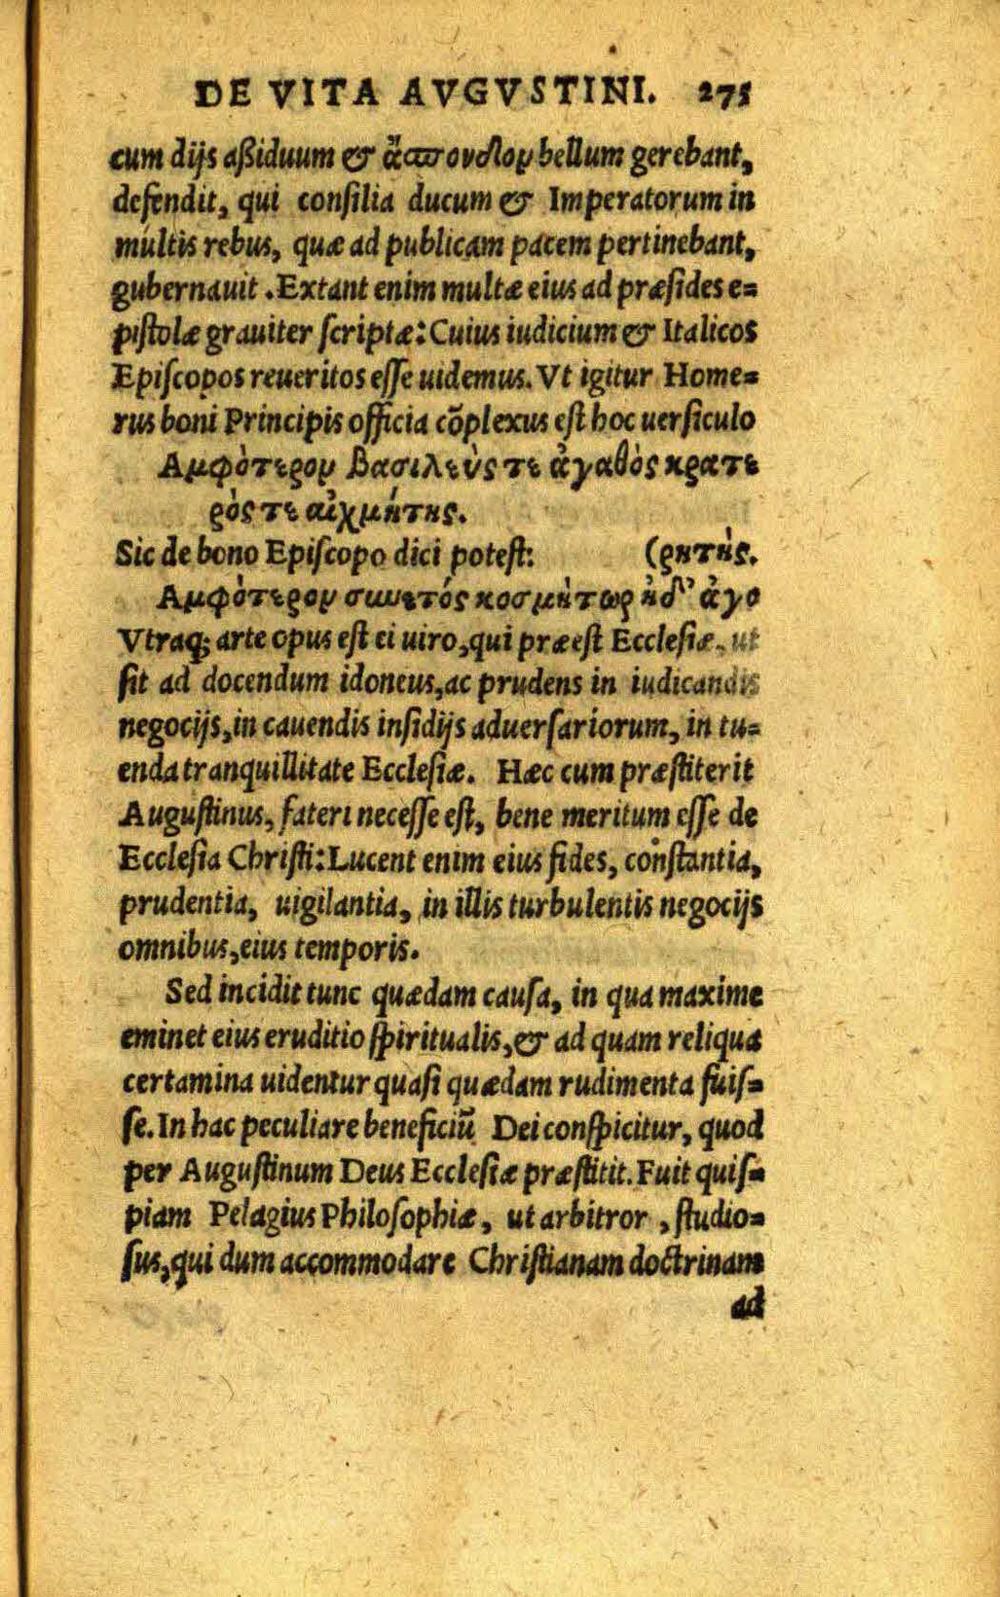 DE VITA AVGVSTINI. 275
cum dijs aßiduum & ἄσπονδον bellum gerebant,
defendit, qui consilia ducum & Imperatorum in
multis rebus, quæ ad publicam pacem pertinebant,
gubernauit. Extant enim multæ eius ad præsides e=
pistolæ grauiter scriptæ: Cuius iudicium & Italicos
Episcopos reueritos esse uidemus. Vt igitur Home=
rus boni Principis officia cõplexus est hoc uersiculo
Αμφότερον βασιλεύς τε ἀγαθὸς κρατε
ρός τε αἰχμήτης.
Sic de bono Episcopo dici potest: (ρητής.
Αμφότερον συνετός κοσμήτωρ ἠδ' ἀγο
Vtraq; arte opus est ei uiro, qui præest Ecclesiæ, ut
sit ad docendum idoneus, ac prudens in iudicandis
negocijs, in cauendis insidijs aduersariorum, in tu=
enda tranquillitate Ecclesiæ. Hæc cum præstiterit
Augustinus, fateri necesse est, bene meritum esse de
Ecclesia Christi: Lucent enim eius fides, constantia,
prudentia, uigilantia, in illis turbulentis negocijs
omnibus, eius temporis.
Sed incidit tunc quædam causa, in qua maxime
eminet eius eruditio spiritualis, & ad quam reliqua
certamina uidentur quasi quædam rudimenta fuis=
se. In hac peculiare beneficiũ Dei conspicitur, quod
per Augustinum Deus Ecclesiæ præstitit. Fuit quis=
piam Pelagius Philosophiæ, ut arbitror, studio=
sus, qui dum accommodare Christianam doctrinam
ad